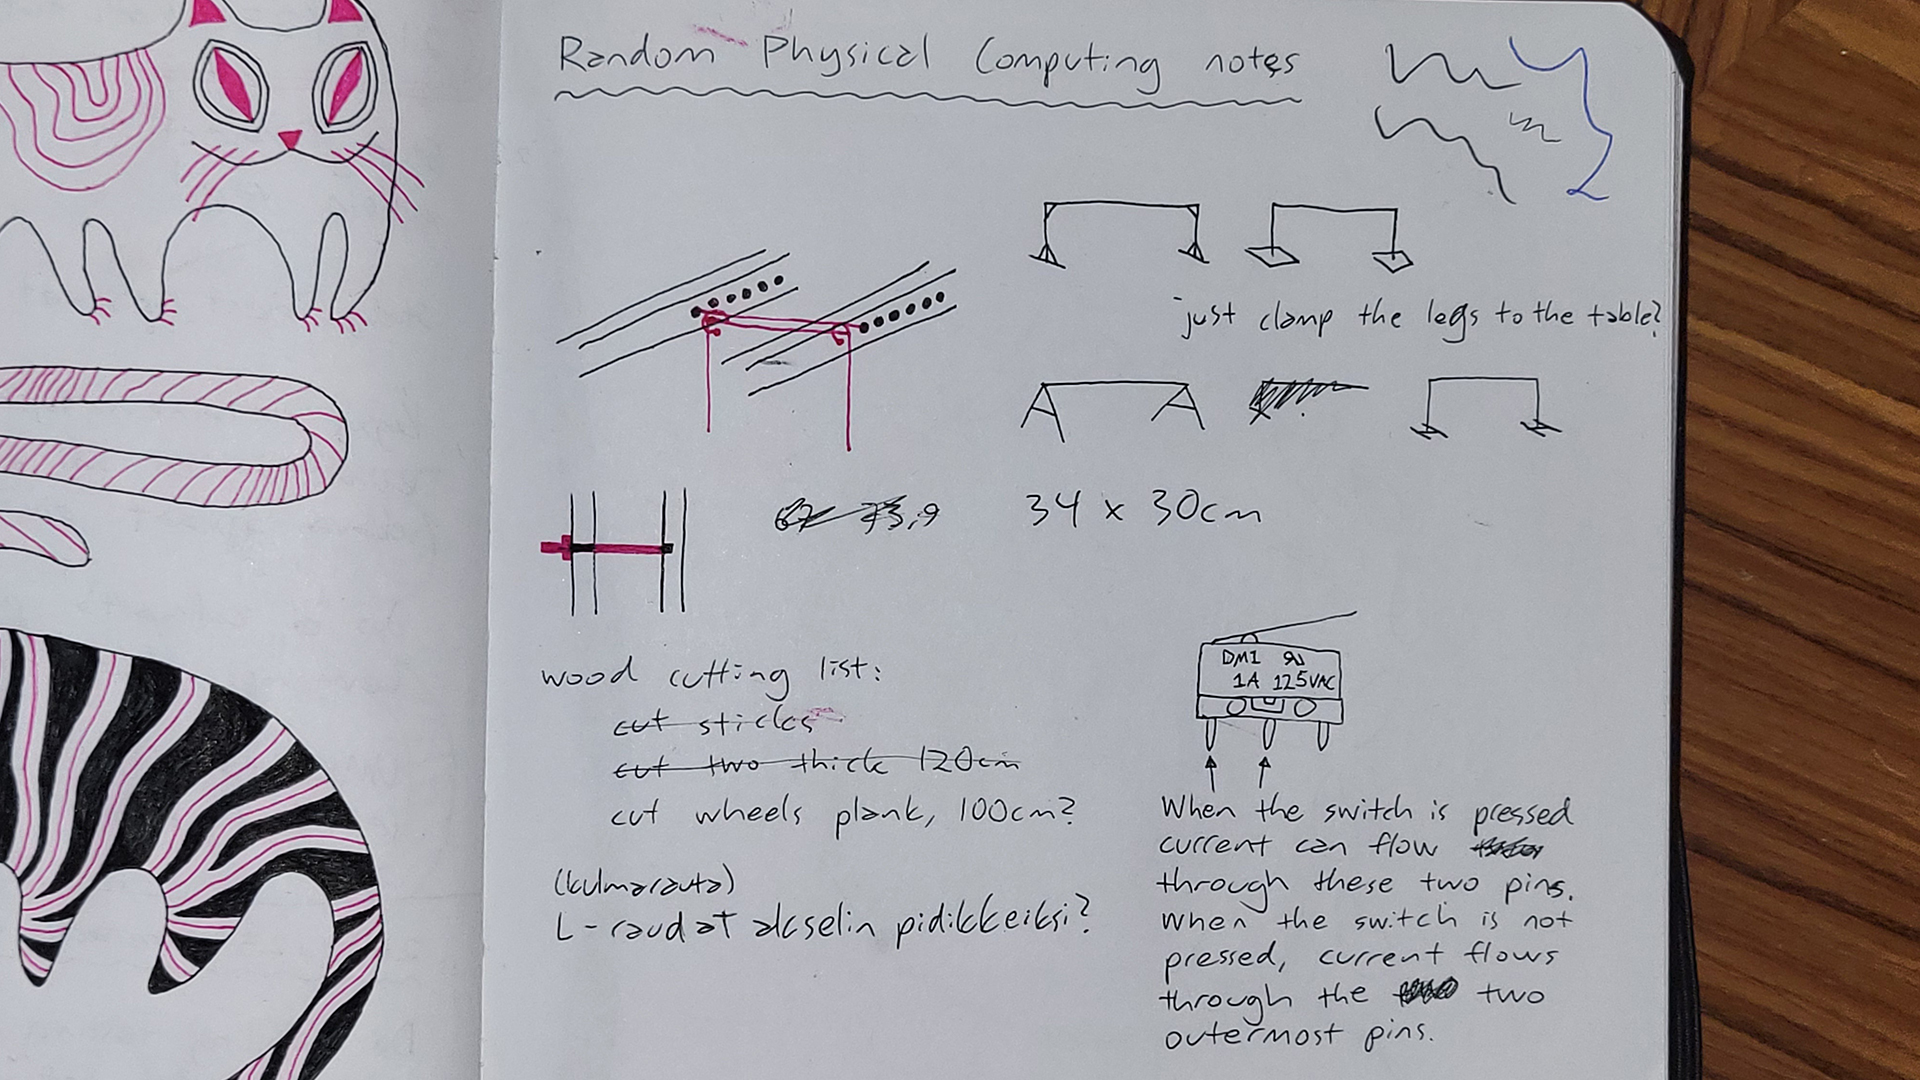 Random Physical Computing notes
just clamp the legs to the table?
34 x 30cm
wood cutting list:
cut sticks
cut two thick 120cm
cut wheels plank, 100cm?
(kulmarauta)
L-raudat akselin pidikkeiksi?
DM1
1A 125VAC
When the switch is pressed
current can flow
through these two pins.
When the switch is not
pressed, current flows
through the two
outermost pins.